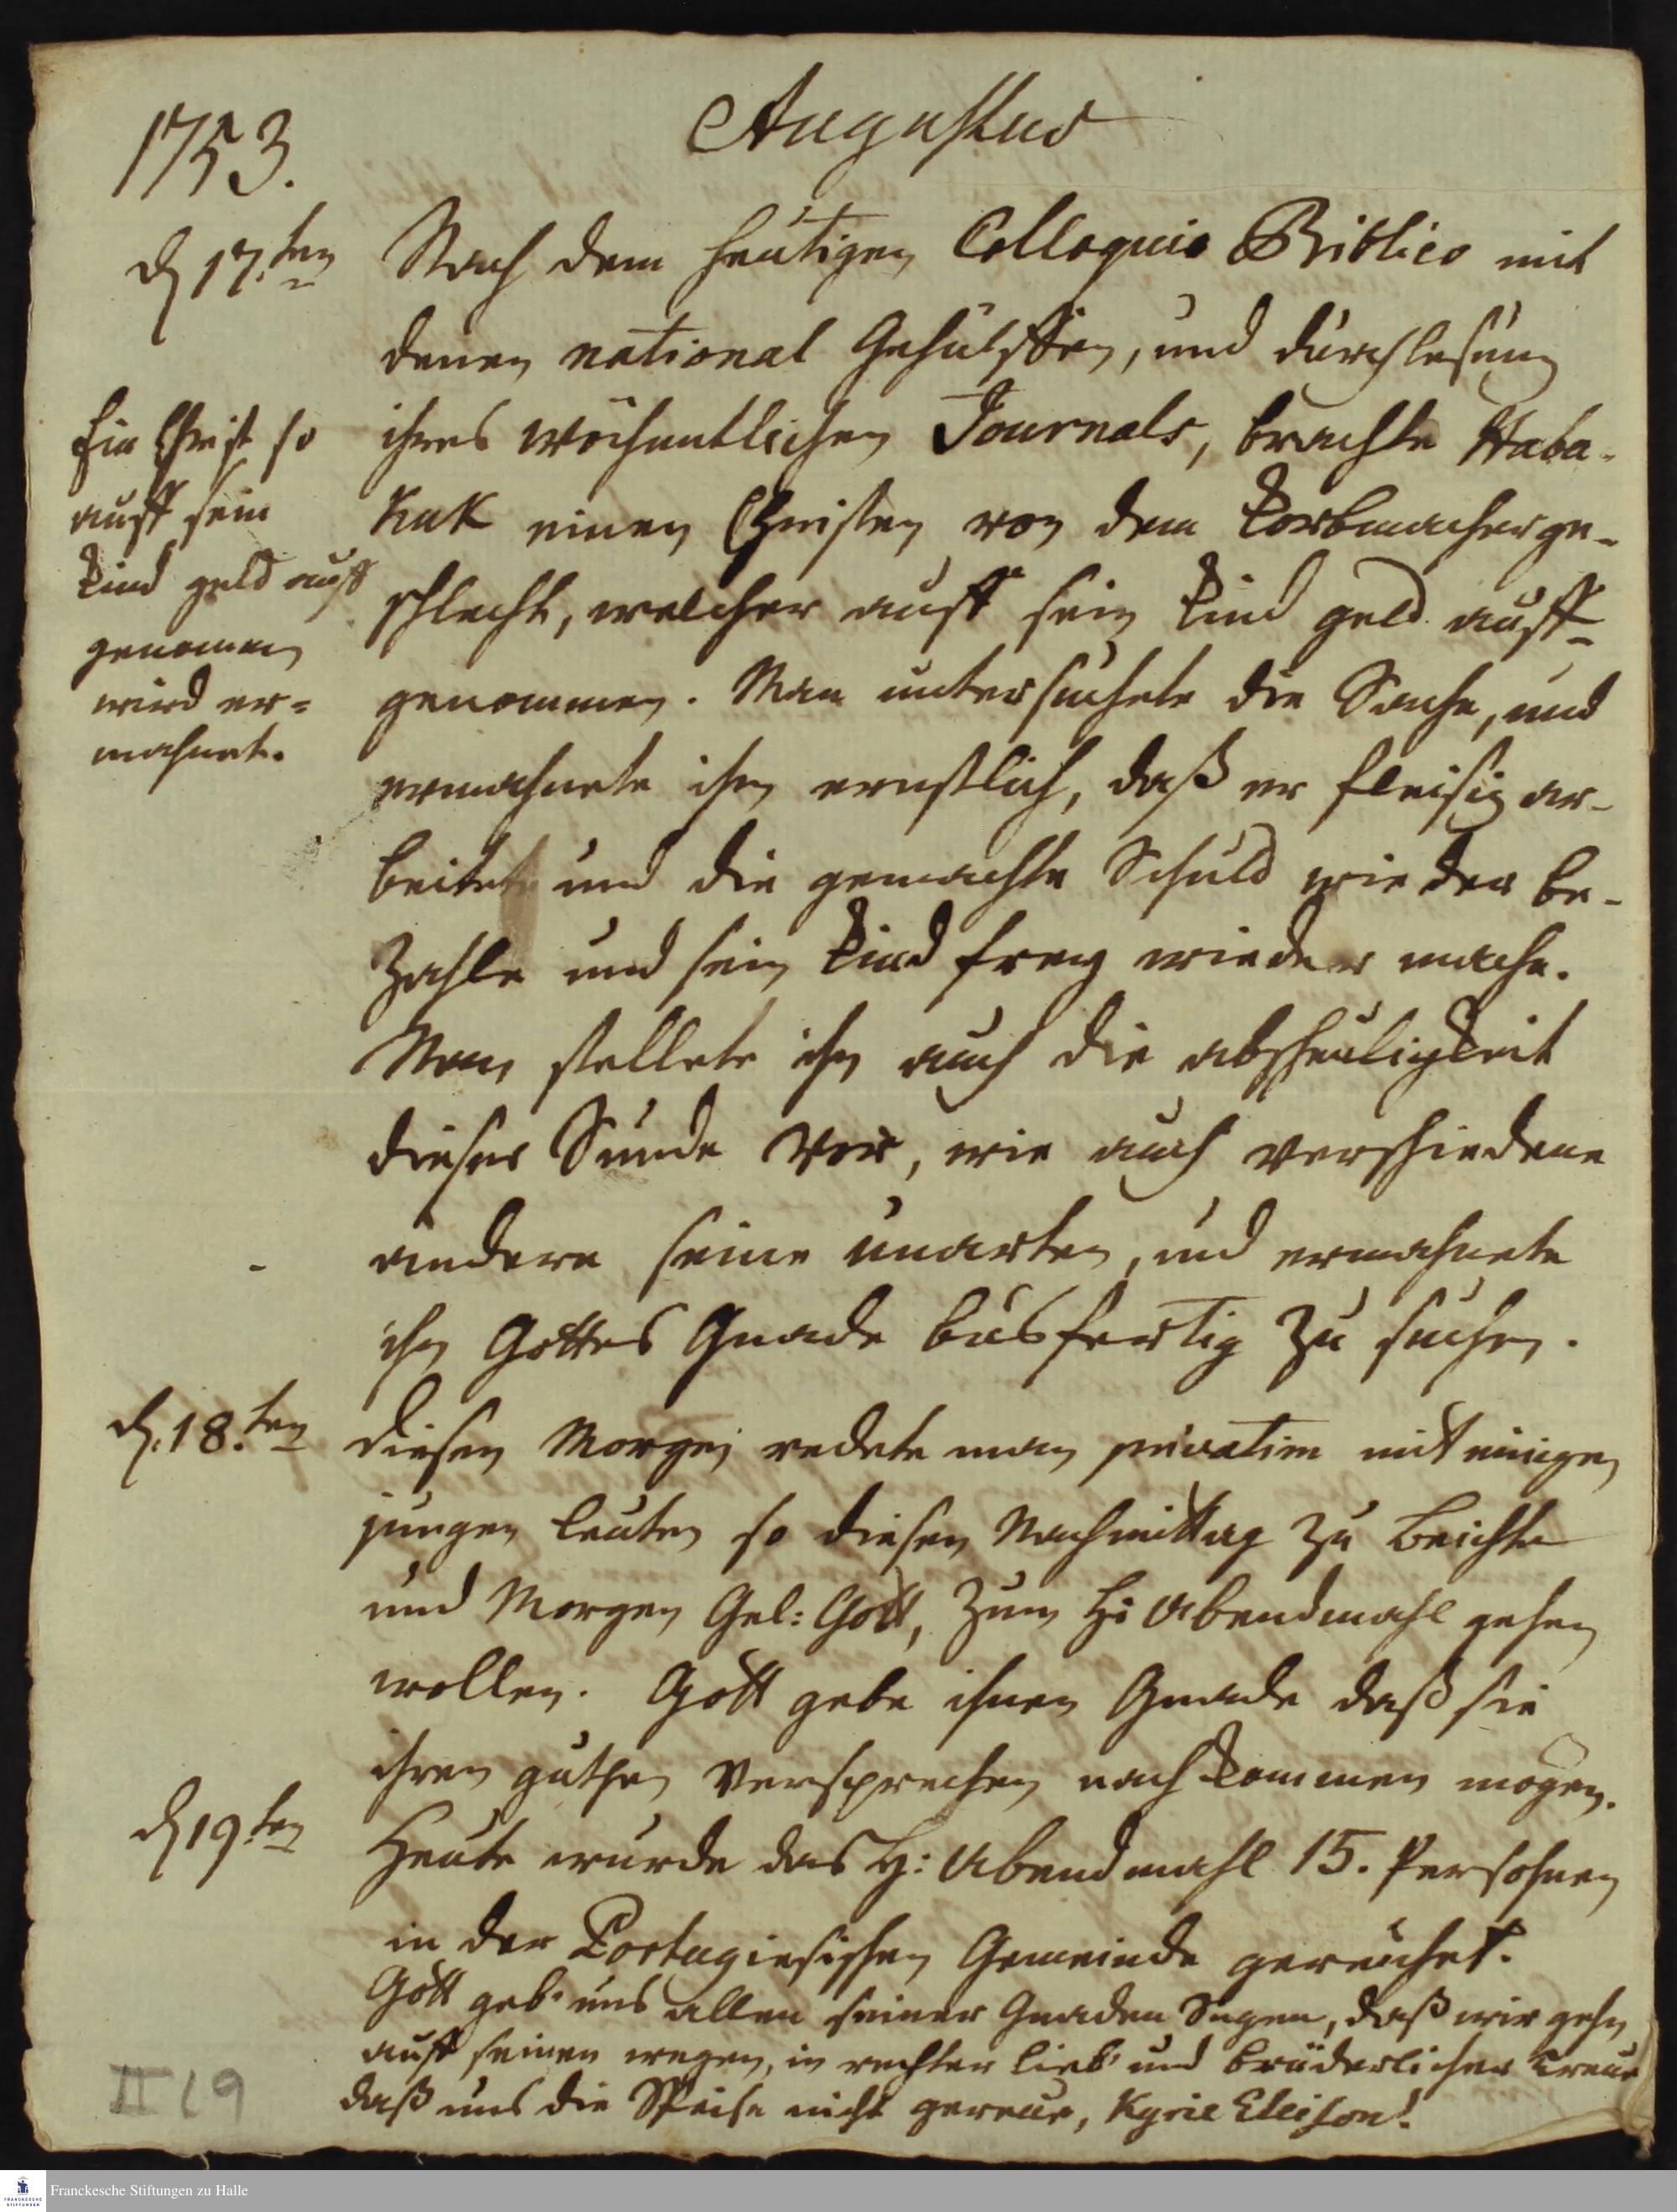 1753.
Augustus
d 17.ten
Nach dem heutigen Colloquio Biblico mit
denen national Gehülffen, und durchlesung
ihres wöchentlichen Journals, brachte Haba-
kuk einen Christen von dem Korbmacherge-
schlecht, welcher auff sein Kind geld auff-
genommen. Man untersuchete die Sache, und
ermahnete ihn ernstlich, daß er fleisig ar-
beitete und die gemachte Schuld wieder be-
zahle und sein Kind frey wieder mache.
Man stellete ihn auch die abscheuligkeit
dieser Sünde vor, wie auch verschiedene
andere seine unarten, und ermahnete
ihn Gottes Gnade busfertig zu suchen.
Ein Christ so
auff sein
Kind geld auff
genomen
wird er=
mahnet.
d. 18.ten
diesen Morgen redete man privatim mit einigen
jungen leuten so diesen Nachmittag zu Beichte
und Morgen Gel: Gott, zum H: Abendmahl gehen
wollen. Gott gebe ihnen Gnade daß sie
ihren guthen Versprechen nach kommen mögen.
d 19.ten
Heute wurde das H: Abendmahl 15. Persohnen
in der Portugiesischen Gemeinde gereichet.
Gott geb' uns allen seiner Gnaden Segen, daß wir gehn
auff seinen wegen, in rechter lieb' und brüderlicher treue
daß uns die Speise nicht gereue, Kyrie Eleison!
II L9
Franckesche Stiftungen zu Halle
FRANCKESCHE STIFTUNGEN